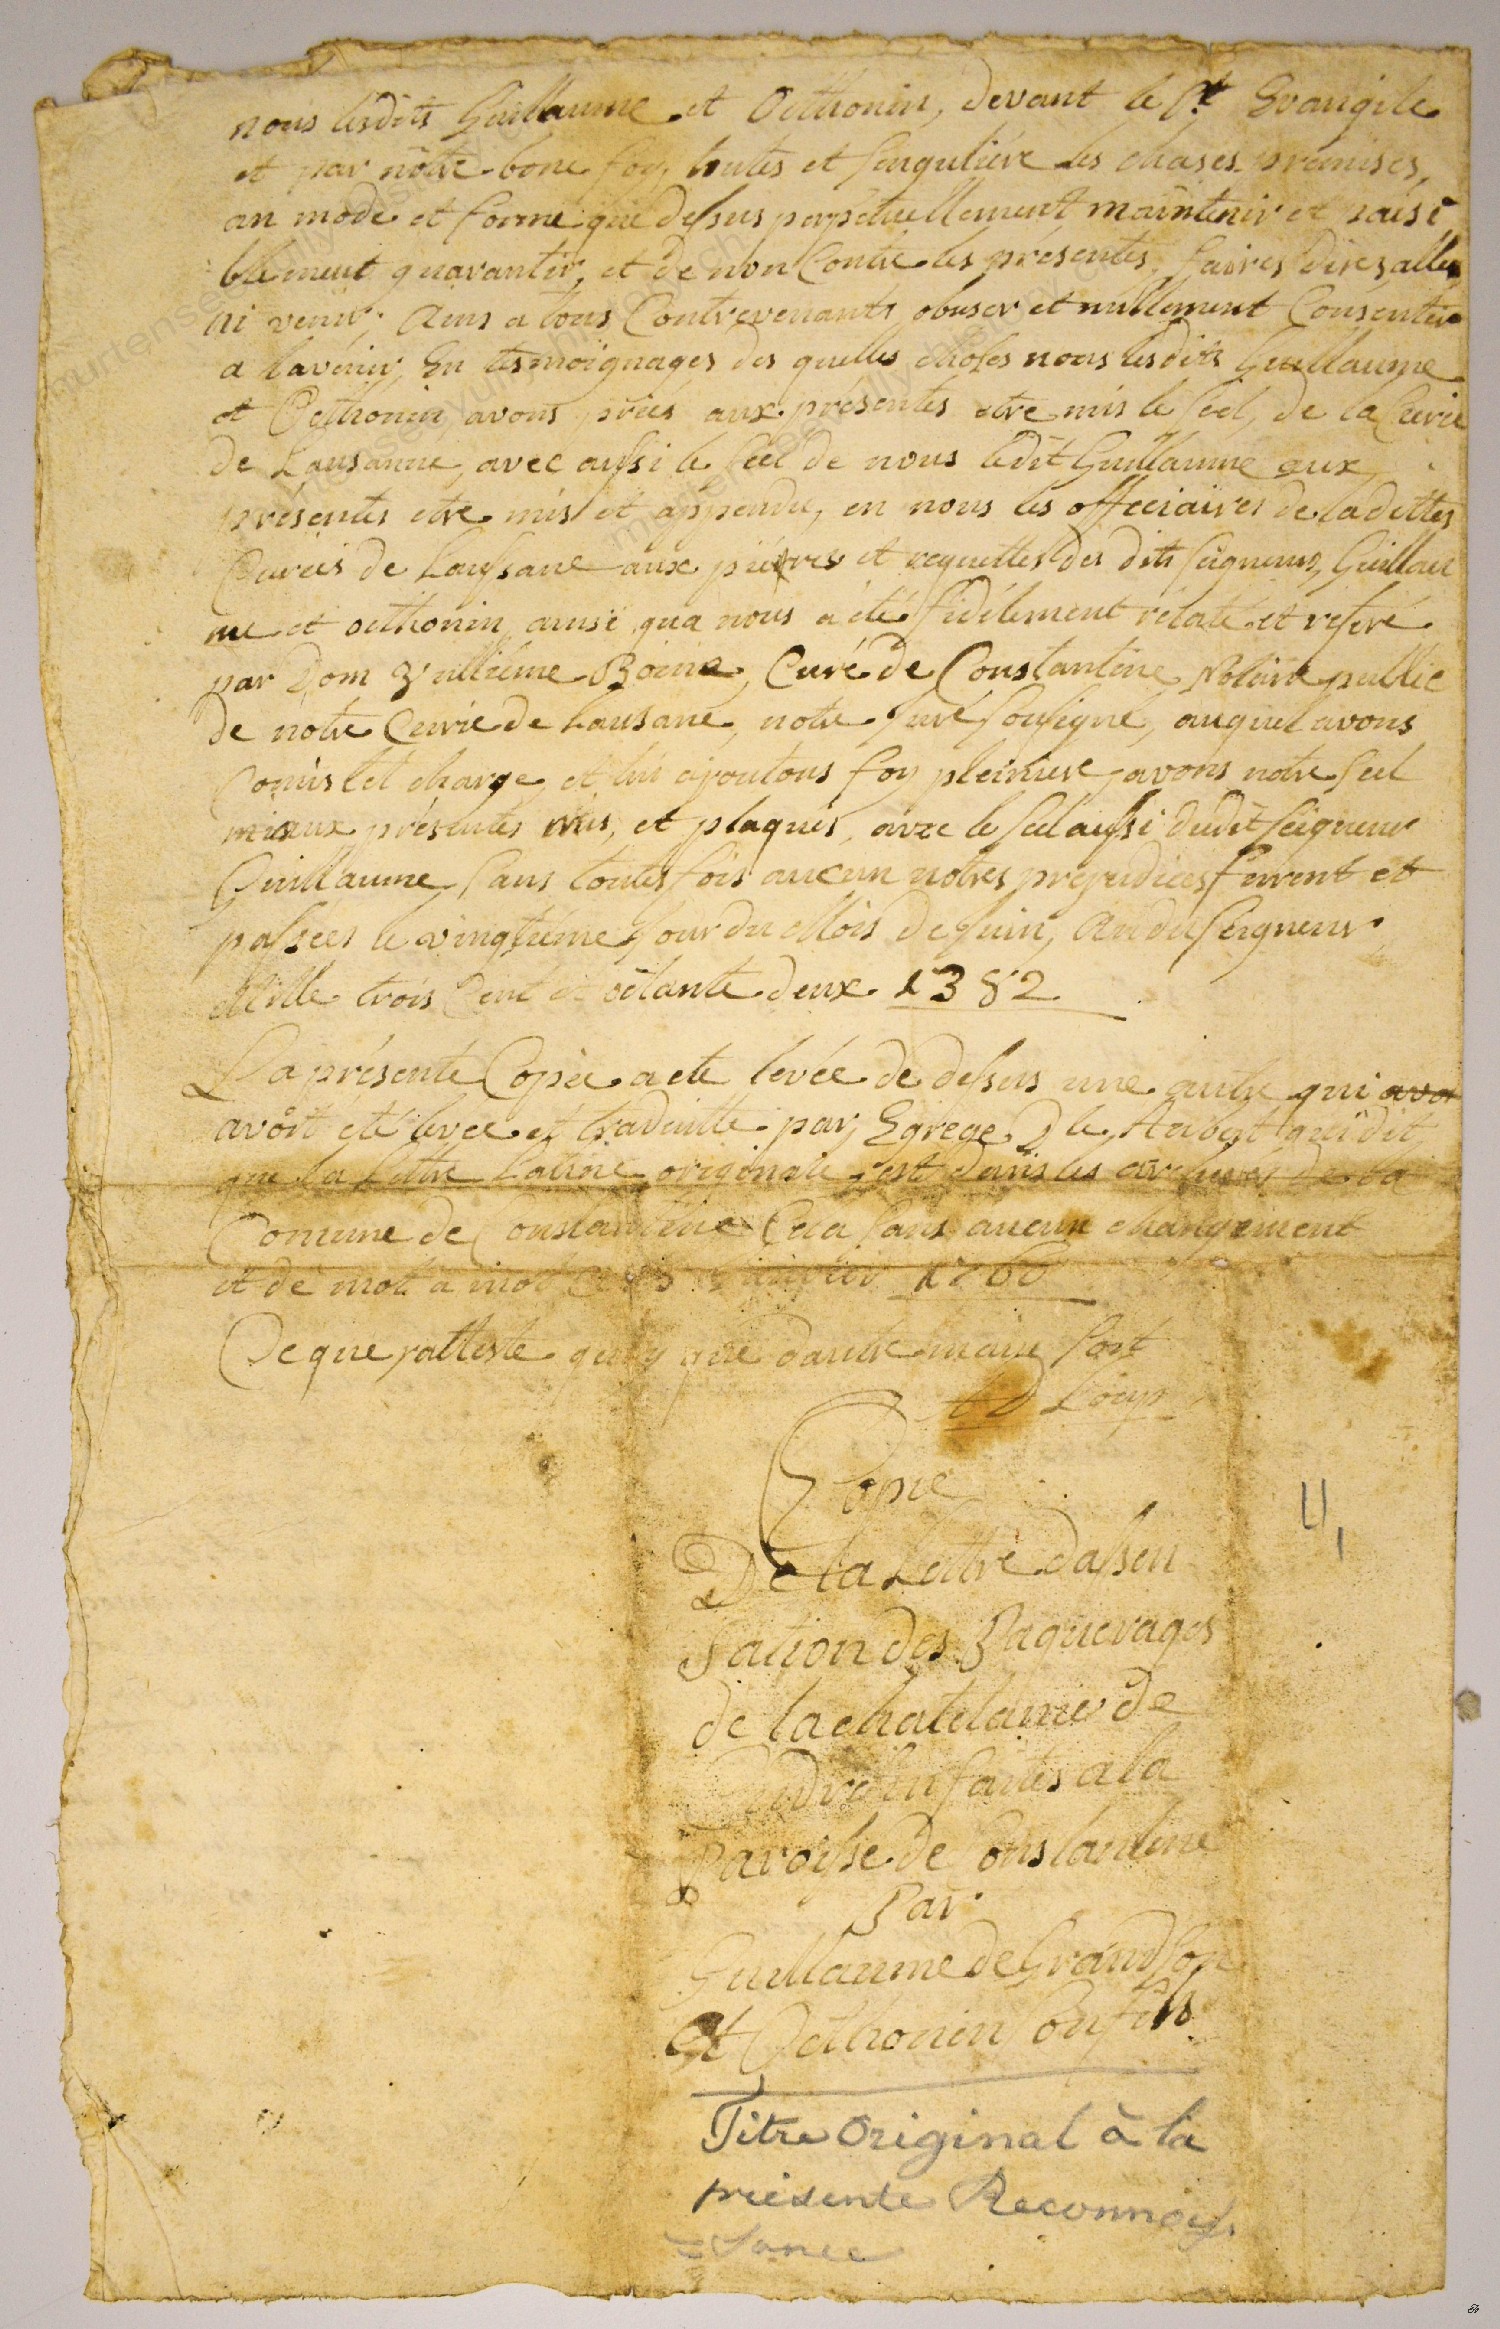 nous lesdits Guillaume et Oethonin, devant le St Evangile
et par nôtre bone foy, toutes et singuliére les choses premises,
an mode et forme que dessus perpetuellement maintenir et paisi
blement guarantir, et de non Contre les présentes, faires dires aller
ni venir; Ains a tous Contrevenants obuser et nullement Consentir
a lavenir, En tesmoignages des quelles choses nous lesdits Guillaume
et Oethonin, avons priés aux présentes etre mis le seel, de la Curie
de Lausanne, avec aussi le seel de nous ledit Guillaume aux
présentes etre mis et appendu, en nous les officiaires de ladittes
Curies de Laussane aux priéres et requettes des dits seigneurs, Guillau
me et oethonin, ainsi qua nous a été fidélement rélaté et referé
par Dom Vulliéme Boina, Curé de Constantine Notaire public
de nôtre Curie de Lausane, notre Juré sousigné, auquel avons
Comis et charge, et lui ajoutons foy pleiniere, avons notre seel
aux présentes mis, et plaqués, avec le seel aussi dudit seigneur
Guillaume, sans toutes fois aucun notres prejudices furent et
passées le vingtiéme Jour du Mois de Juin, An du seigneur
Mille trois Cent et oëtante deux 1382
La présente Copie a ete levée de dessus une autre qui avoi
avoit été levée et traduitte par Egrege Dle Aubert qui dit
que la lettre latine originale est dans les archives de la
Comune de Constantine Cela sans aucun changement
et de mot a mot Ce 1760
Ce que jatteste quoy que dautre main soit
Loup
Copie
De la Lettre dassen
sation des Paquerages
de la chatelanie de
Cudrefin faites a la
Paroisse de Constantine
Par
Guillaume de Grandson
Et Oethonin son fils
Titre Original à la
présente Reconnoys
=sance
4,